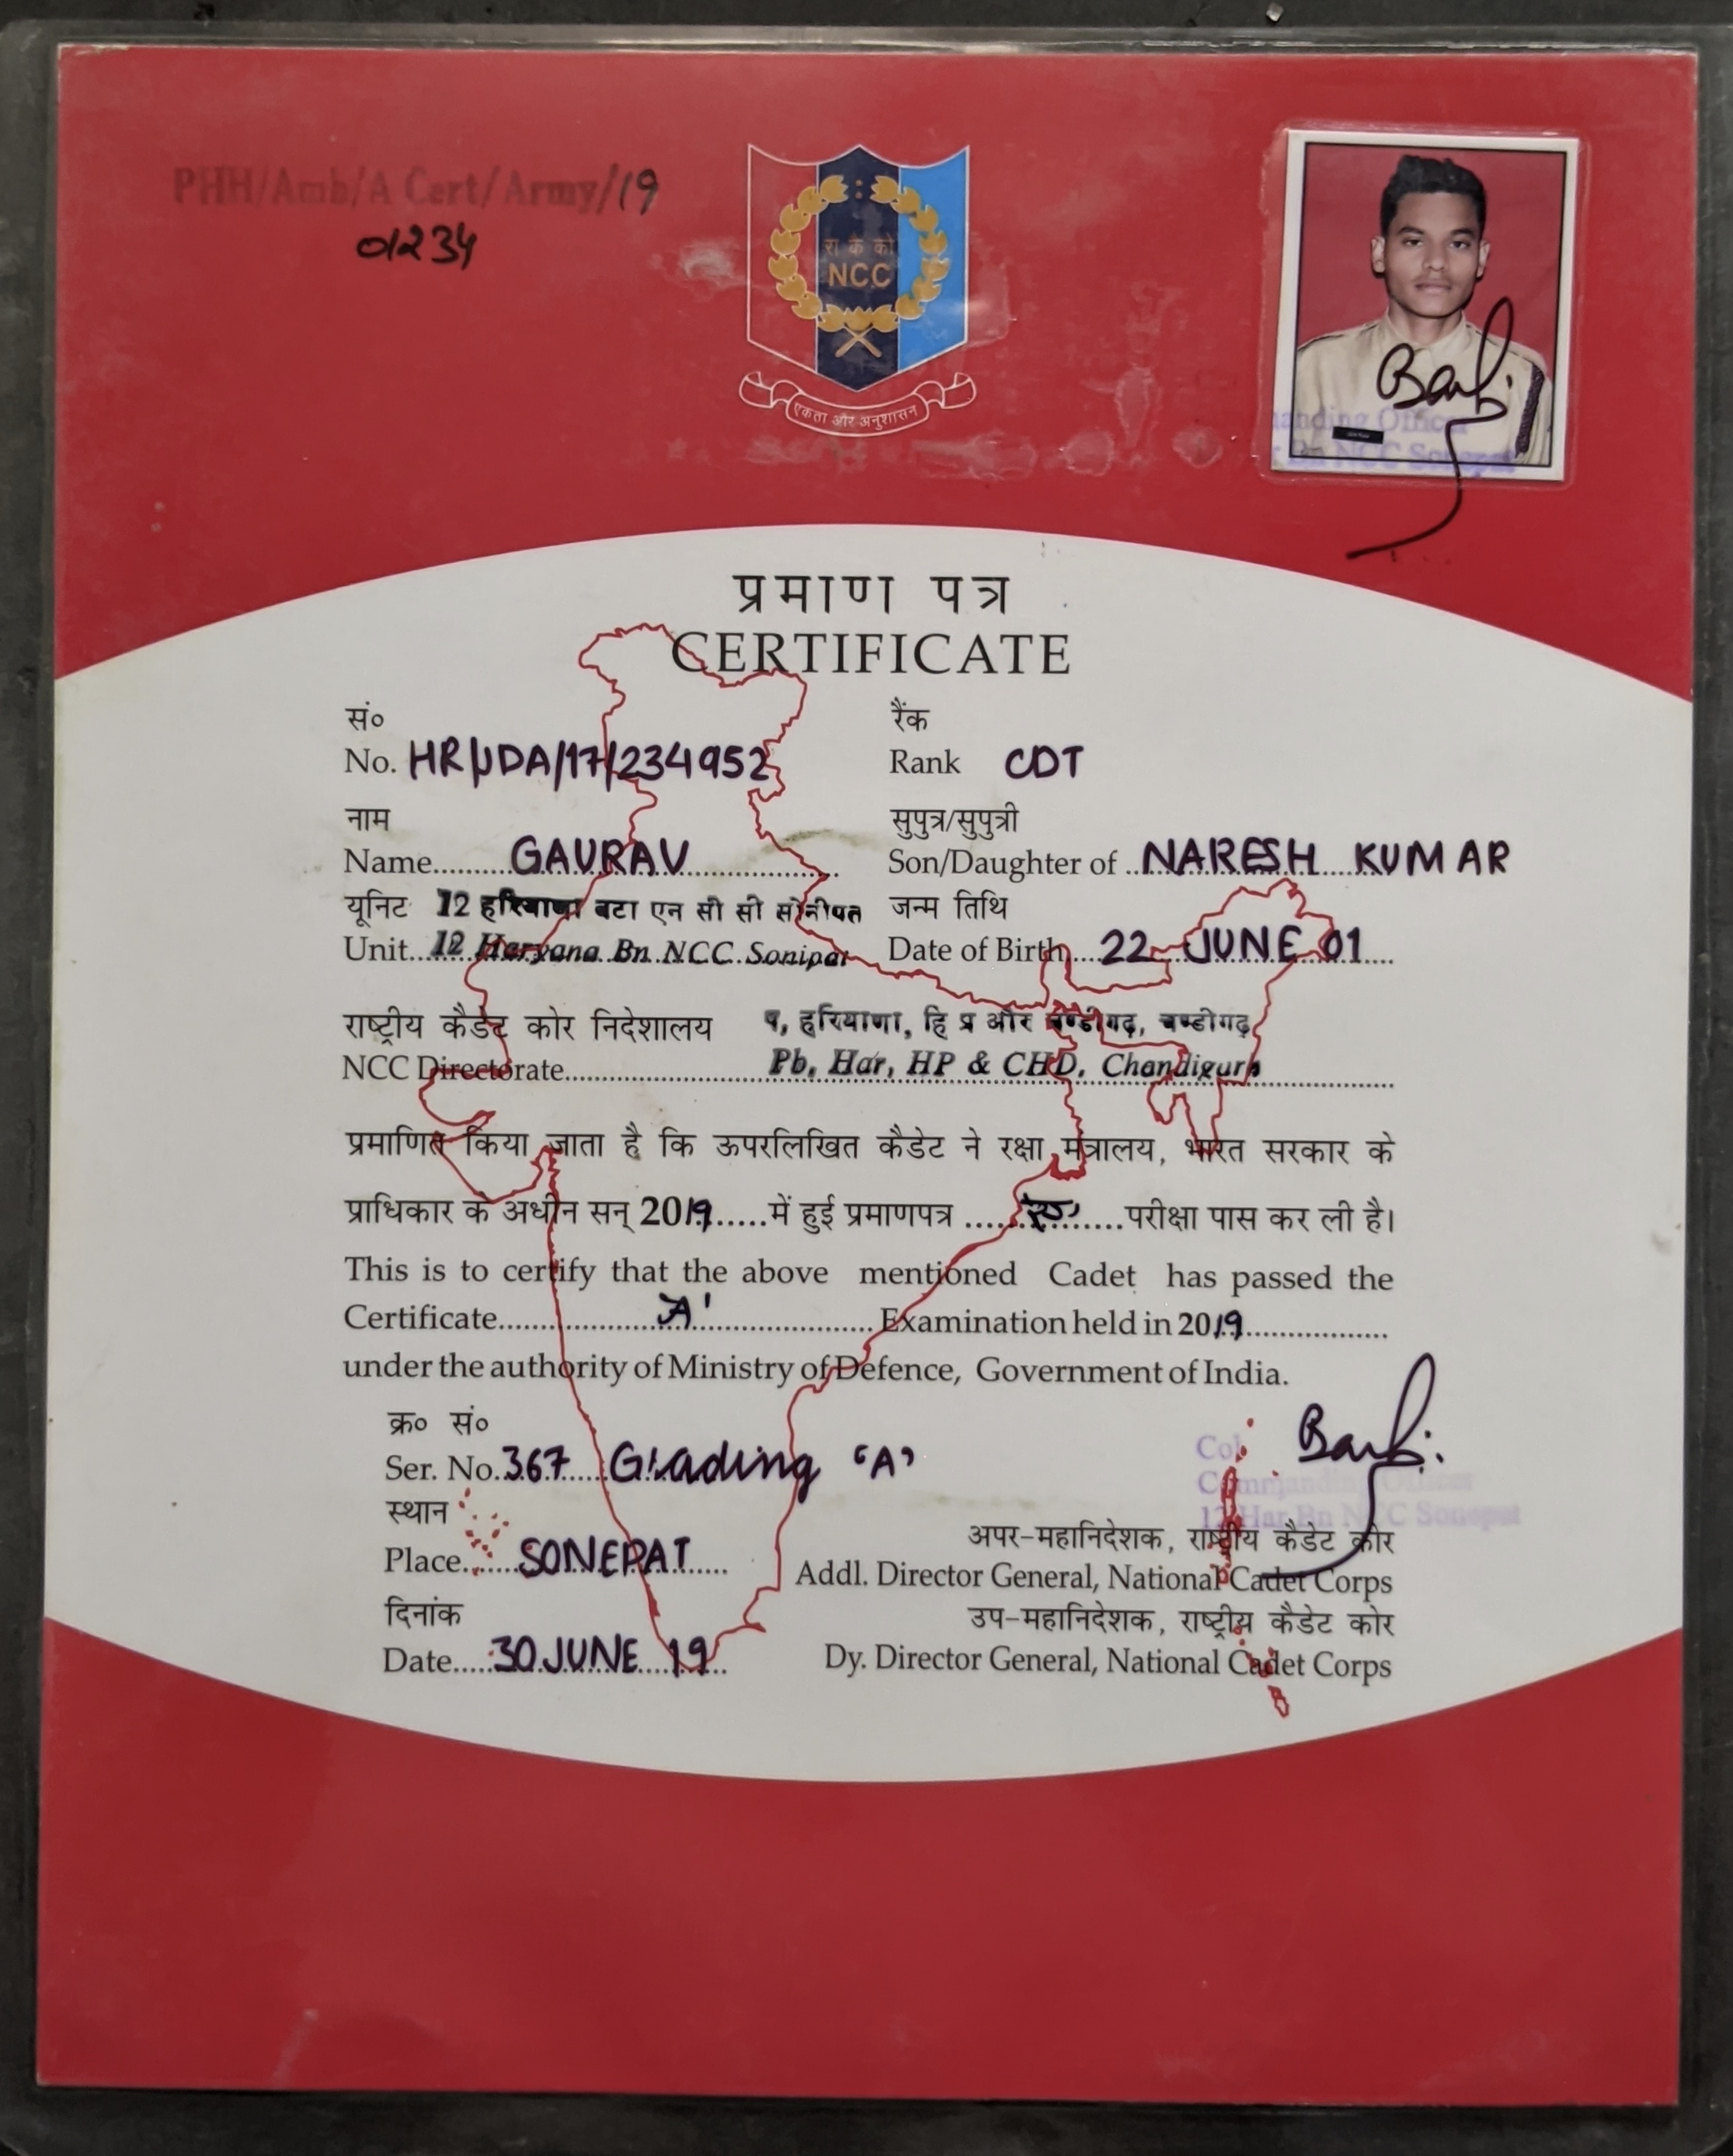 PHH/Amb/A Cert/Army/19
01234
रा कै को
NCC
एकता और अनुशासन
anding Officer
Bn NCC Sonepat
प्रमाण पत्र
CERTIFICATE
सं०
No. HR/JDA/17/234952
रैंक
Rank CDT
नाम
Name.........GAURAV..................
सुपुत्र/सुपुत्री
Son/Daughter of ..NARESH KUMAR
यूनिट 12 हरियाणा बटा एन सी सी सोनीपत
Unit...12 Haryana Bn NCC Sonipat
जन्म तिथि
Date of Birth....22 JUNE 01....
राष्ट्रीय कैडेट कोर निदेशालय प, हरियाणा, हि प्र और चण्डीगढ़, चण्डीगढ़
NCC Directorate....................Pb, Har, HP & CHD, Chandigarh....................
प्रमाणित किया जाता है कि ऊपरलिखित कैडेट ने रक्षा मंत्रालय, भारत सरकार के
प्राधिकार के अधीन सन् 2019.....में हुई प्रमाणपत्र ......'ए'......परीक्षा पास कर ली है।
This is to certify that the above mentioned Cadet has passed the
Certificate....................'A'.................... Examination held in 2019....................
under the authority of Ministry of Defence, Government of India.
क्र० सं०
Ser. No.367.....Grading 'A'
स्थान
Place.......SONEPAT......
दिनांक
Date.....30 JUNE 19..
Col
Commanding Officer
12 Har Bn NCC Sonepat
अपर-महानिदेशक, राष्ट्रीय कैडेट कोर
Addl. Director General, National Cadet Corps
उप-महानिदेशक, राष्ट्रीय कैडेट कोर
Dy. Director General, National Cadet Corps